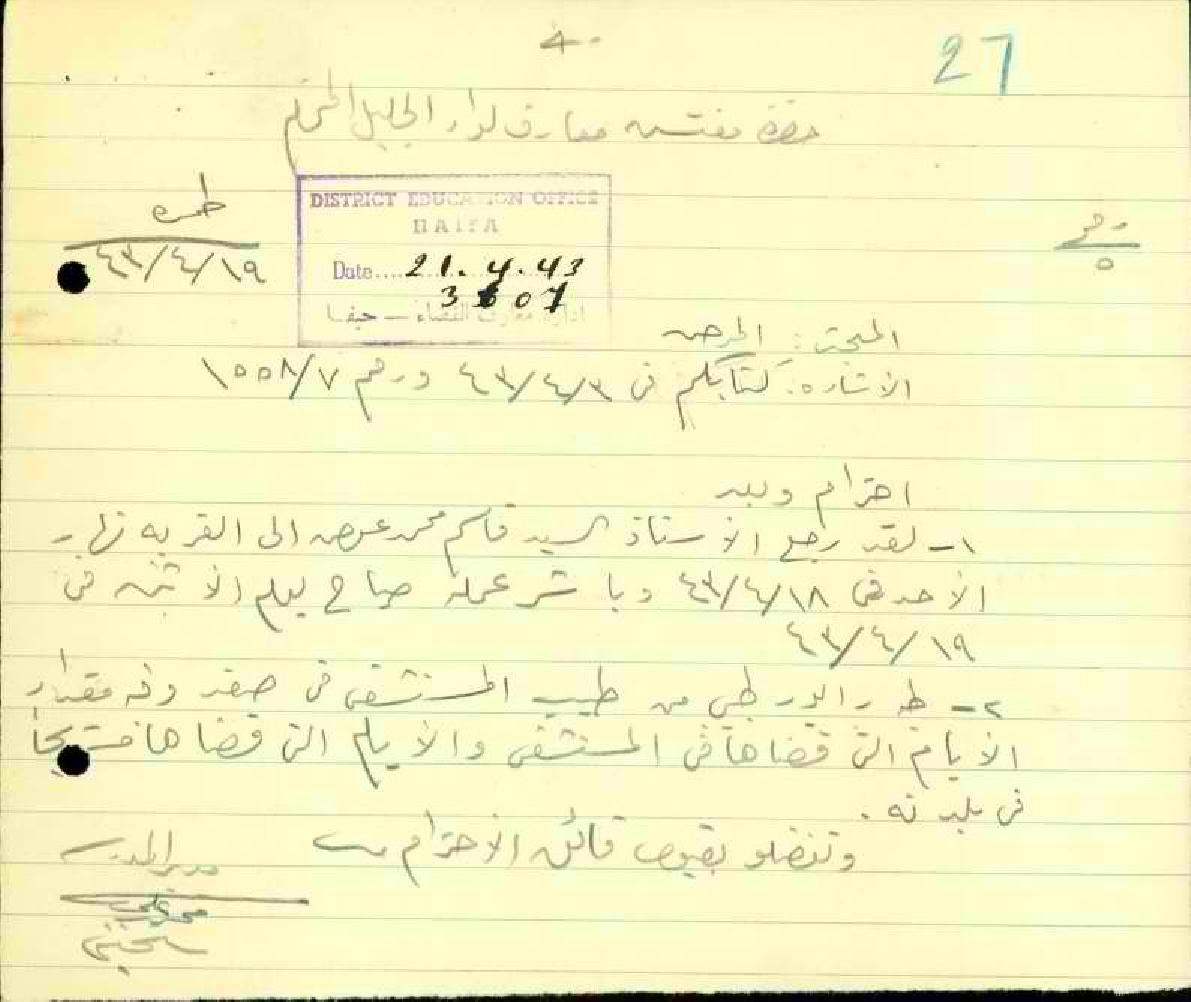 27
حضرة مفتش معارف لواء الجليل المحترم
DISTRICT EDUCATION OFFICE
HAIFA
Date.... 21.4.43
3607
ادارة معارف القضاء — حيفا
٤٣/٤/١٩
رقم
٥
المبحث: المرض
الاشاره: كتابكم في ٤٣/٤/٣ ورقم ١٥٥٨/٧
احترام وبعد
١- لقد رجع الاستاذ السيد قاسم محمد عوض الى القريه نهار
الاحد في ٤٣/٤/١٨ وباشر عمله صباح يوم الاثنين في
٤٣/٤/١٩
٢- طيه من طبيب المستشفى في صفد وفيه مقدار
الايام التي قضاها في المستشفى والايام التي قضاها مستريحاً
في بلدته.
وتفضلو بقبول فائق الاحترام
مدير المدرسة